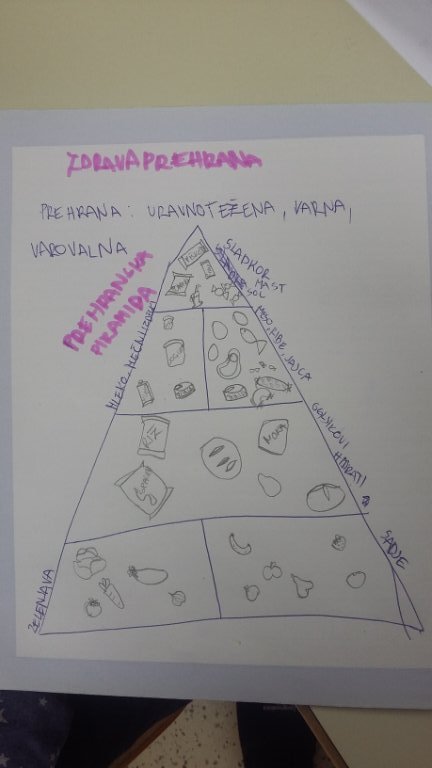 ZDRAVA PREHRANA
PREHRANA: URAVNOTEŽENA, VARNA,
VAROVALNA
PREHRANSKA
PIRAMIDA
SLADKOR
MAST
SOL
MLEKO, MLEČNI IZDELKI
MESO, RIBE, JAJCA
OGLJIKOVI
HIDRATI
RIŽ
MOKA
ZELENJAVA
SADJE